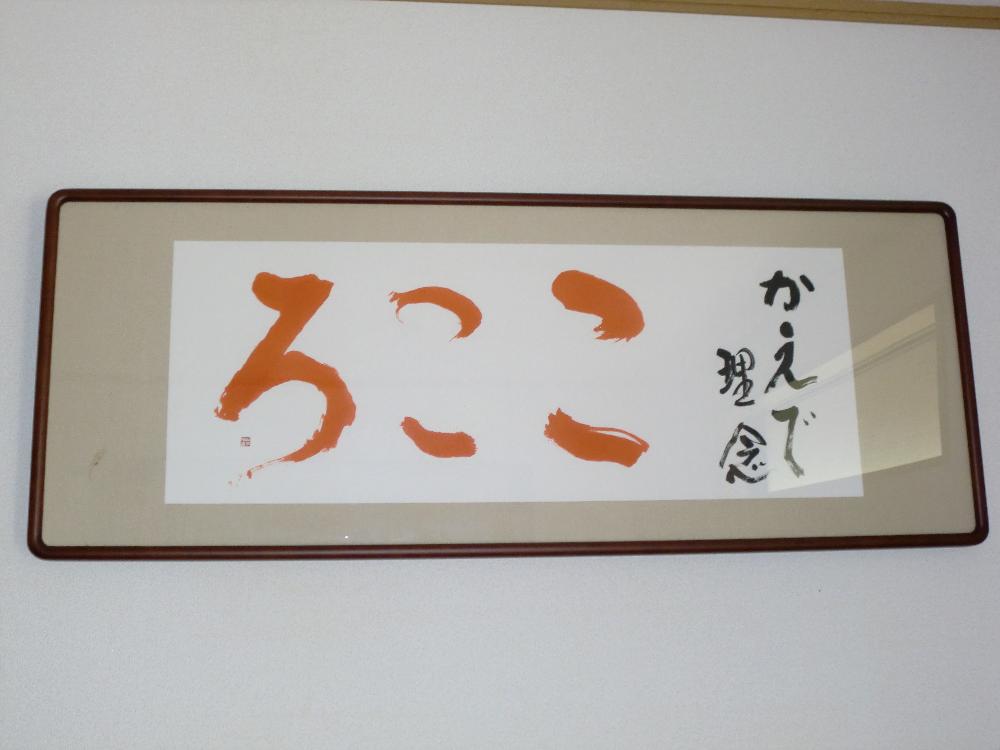 かえで
理念
こころ